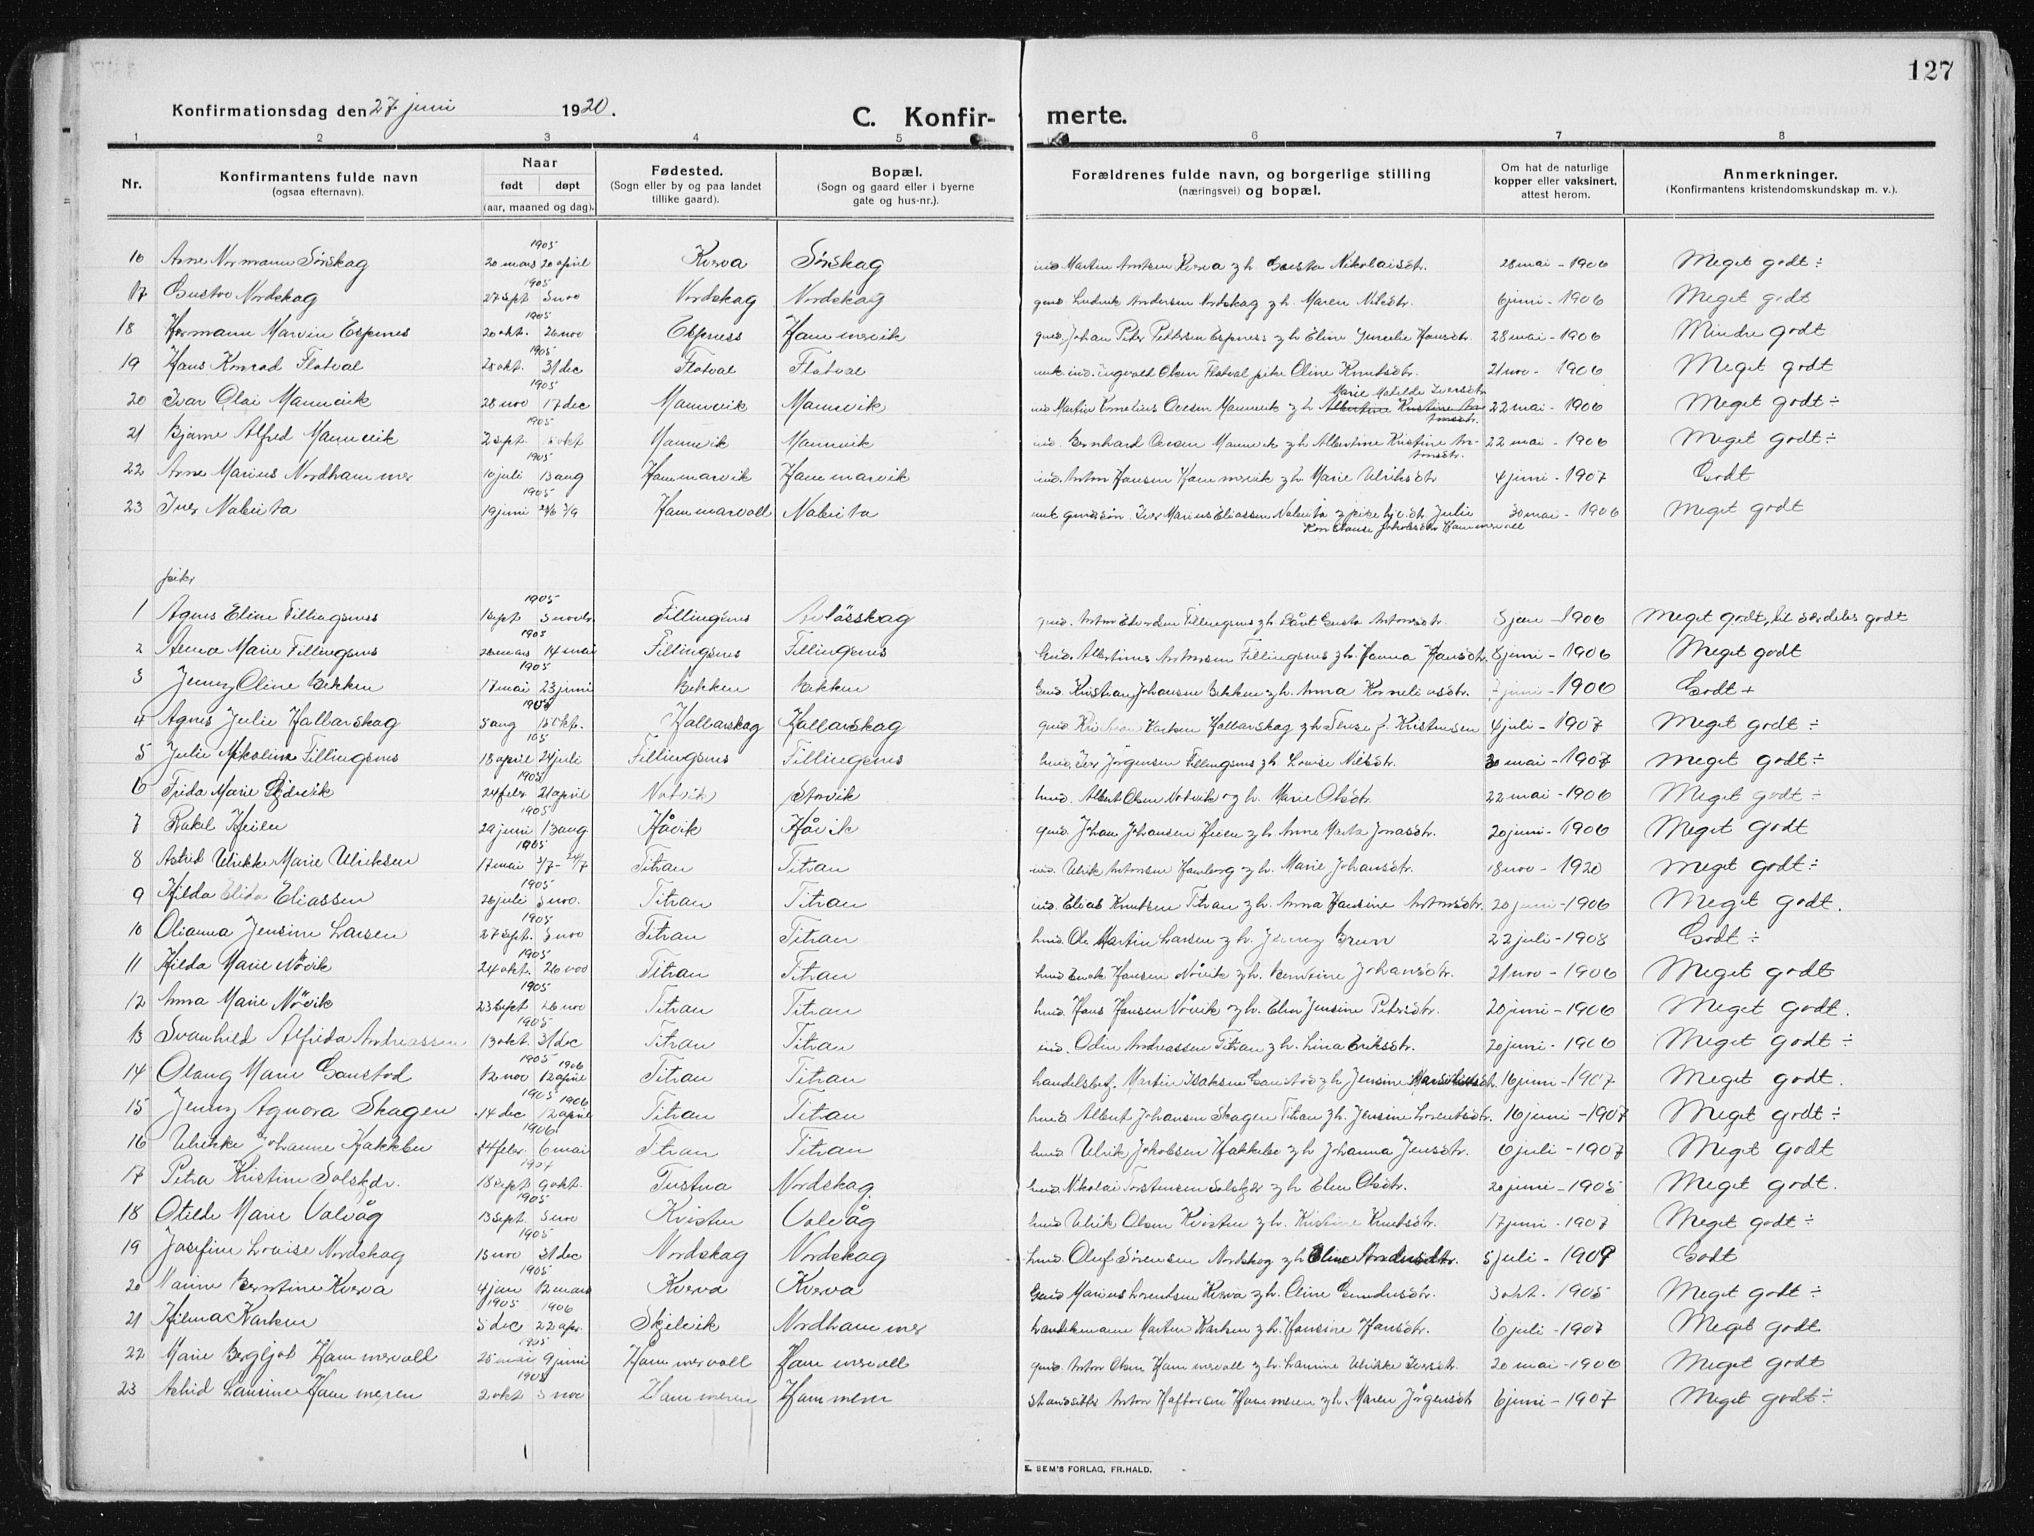 127
Konfirmationsdag den 27 juni 1920.
C. Konfirmerte.
1 2 3 4 5 6 7 8
Nr. Konfirmantens fulde navn (ogsaa efternavn). Naar født døpt (aar, maaned og dag). Fødested. (Sogn eller by og paa landet tillike gaard). Bopæl. (Sogn og gaard eller i byerne gate og hus-nr.). Forældrenes fulde navn, og borgerlige stilling (næringsvei) og bopæl. Om hat de naturlige kopper eller vaksinert, attest herom. Anmerkninger. (Konfirmantens kristendomskundskap m. v.).
1905
16 Arne Normann Sørskag 20 mars 20 april Kverva Sørskag ind. Martin Kverva g h Nikolaisdtr. 28 mai - 1906 Meget godt ÷
1905
17 Gustav Nordskag 27 sept 5 nov Nordskag Nordskag gmd. Ludvik Andersen Nordskag g h. Maren Nilsdtr. 6 juni - 1906 Meget godt
1905
18 Hermann Marvin Espnes 20 okt. 26 nov Espness Hammervik gmd. Johan Peter Pettersen Espness g h Eline Hansdtr. 28 mai - 1906 Mindre godt
1905
19 Hans Konrad Flatval 28 okt. 31 dec Flatval Flatval uekt ind. Ingvald Olsen Flatval pike Oline Knutsdtr. 21 nov - 1906 Meget godt
1905
20 Ivar Olai Mannvik 28 nov 17 dec Mannvik Mannvik ind Martin Kornelius Ovesen Mannvik g h Albertine Kristine Antonsdtr. Marie Matilde Iversdtr 22 mai - 1906 Meget godt ÷
1905
21 Bjarne Alfred Mannvik 2 sept. okt Mannvik Mannvik ind. Bernhard Ovesen Mannvik g h Albertine Kristine Antonsdtr. 22 mai - 1906 Meget godt ÷
1905
22 Arne Marius Nordhammer 10 juli 13 aug Hammarvik Hammarvik ind. Anton Hansen Hammervik g h. Marie Ulriksdtr 4 juni - 1907 Godt
1905
23 Iver Nabeita 19 juni Hammarvoll Nabeita uekt Iver Marius Eliassen Nabeita g pike Julie Konstanse Jakobsdtr Hammervoll 30 mai - 1906 Meget godt
piker
1905
1 Agnes Eline Fillingsnes 1 sept 5 novbr Fillingsnes Avløsskag gmd. Anton Edvardsen Fillingsnes g h. Antonsdtr. 5 jan - 1906 Meget godt, til særdeles godt
1905
2 Anna Marie Fillingsnes 28 mars 14 mai Fillingsnes Fillingsnes Gmd. Albertinus Antonsen Fillingsnes g h. Hanna Hansdtr. 8 juni - 1906 Meget godt
1905
3 Jenny Oline Bekken 17 mai 23 juni Bekken Bekken Gmd. Kristian Johansen Bekken g h. Anna Korneliusdtr. 7 juni - 1906 Godt +
1905
4 Agnes Julie Hallarskag 5 aug 15 okt. Hallarskag Hallarskag gmd. Karlsen Hallarskag g h Kristensen 4 juli - 1907 Meget godt ÷
105
5 Julie Nikoline Fillingsnes 18 april 24 juli Fillingsnes Fillingsnes hmd. Iver Jørgensen Fillingsnes g h. Lovise Nilsdtr. 30 mai - 1907 Meget godt ÷
1905
6 Frida Marie 24 febr 21 april Notvik Storvik hmd. Albert Olsen Notvik og h. Marie Olsdtr. 22 mai - 1906 Meget godt ÷
1905
7 Rakel Heien 29 juni 13 aug. Håvik Håvik gmd. Johan Johansen Heien g h. Anne Marta Jonasdtr. 20 juni - 1906 Meget godt
1905
8 Astrid Ulrikke Marie Ulriksen 17 mai 3/7 - 24/7 Titran Titran ind. Ulrik Antonsen Hamborg og h. Marie Johansdtr. 18 nov - 1920 Meget godt ÷
1905
9 Hilda Elida Eliassen 26 juli 5 nov. Titran Titran ind. Elias Knutsen Titran g h. Anna Hansine Antonsdtr. 20 juni - 1906 Meget godt.
1905
10 Olianna Jensine Larsen 27 sept. 5 nov Titran Titran hmd. Ole Martin Larsen g h. Jenny Brun 22 juli - 1908 Godt ÷
1905
11 Hilda Marie Nøvik 24 okt. 26 nov Titran Titran hmd Hansen Nøvik g h. Johansdtr. 21 nov - 1906 Meget godt
1905
12 Anna Marie Nøvik 23 sept 26 nov Titran Titran hmd. Hans Hansen Nøvik og h. Elen Jensine Petersdtr. 20 juni - 1906 Meget godt.
1905
13 Svanhild Alfrida Andreassen 13 okt. 31 dec Titran Titran ind. Odin Andreassen Titran g h. Lina Eriksdtr. 20 juni - 1906 Meget godt ÷
1905 1906
14 Olaug Marie Gaustad 12 nov 12 april Titran Titran handelsbest. Martin Isaksen Gaustad g h Jensine 16 juni - 1907 Meget godt.
1905 1906
15 Jenny Agnora Skagen 14 dec 12 april Titran Titran hmd Albert Johansen Skagen Titran g h. Jensine Lorentsdtr. 16 juni - 1907 Meget godt ÷
1906
16 Ulrikke Johanne Hakkebo 24 febr. 6 mai Titran Titran hmd. Ulrik Jakobsen Hakkebo g h Johanna Jensdtr. 6 juli - 1907 Meget godt
1907
17 Petra Kristine 18 sept 9 okt. Tustna Nordskag hmd. Nikolai Torstensen g h Elen Olsdtr. 20 juni - 1905 Meget godt.
1905
18 Otilde Marie Valvåg 13 sept. 5 nov Kvisten Valvåg hmd Ulrik Olsen Kvisten g h. Kristine Knutsdtr. 17 juni - 1907 Meget godt ÷
1905
19 Josefine Lovise Nordskag 15 nov 31 dec Nordskag Nordskag hmd. Oluf Sørensen Nordskog g h Eline Andersdtr. 5 juli - 1909 Godt
1905
20 Marine Berntine Kverva 4 jan 12 mars Kverva Kverva Gmd Marius Lorentsen Kverva g h. Oline Gundersdtr. 3 okt. 1905 Meget godt ÷
1905 1906
21 Hilma Karlsen 5 dec 22 apr. Skjelvik Nordhammer Martin Karlsen g h. Hansine Hansdtr. 6 juli - 1907 Meget godt
1905
22 Marie Bergljot Hammervoll 25 mai 9 juni Hammervoll Hammervoll gmd. Anton Olsen Hammervoll g h. Ulrikke Iversdtr. 20 mai - 1906 Meget godt
1905
23 Astrid Lausine Hammeren 2 okt 5 nov Hammeren Hammeren strandsitter Anton Haftorsen Hammeren g h. Maren Jørgensdtr 6 juni - 1907 Meget godt ÷
E. SEM'S FORLAG, FR.HALD.